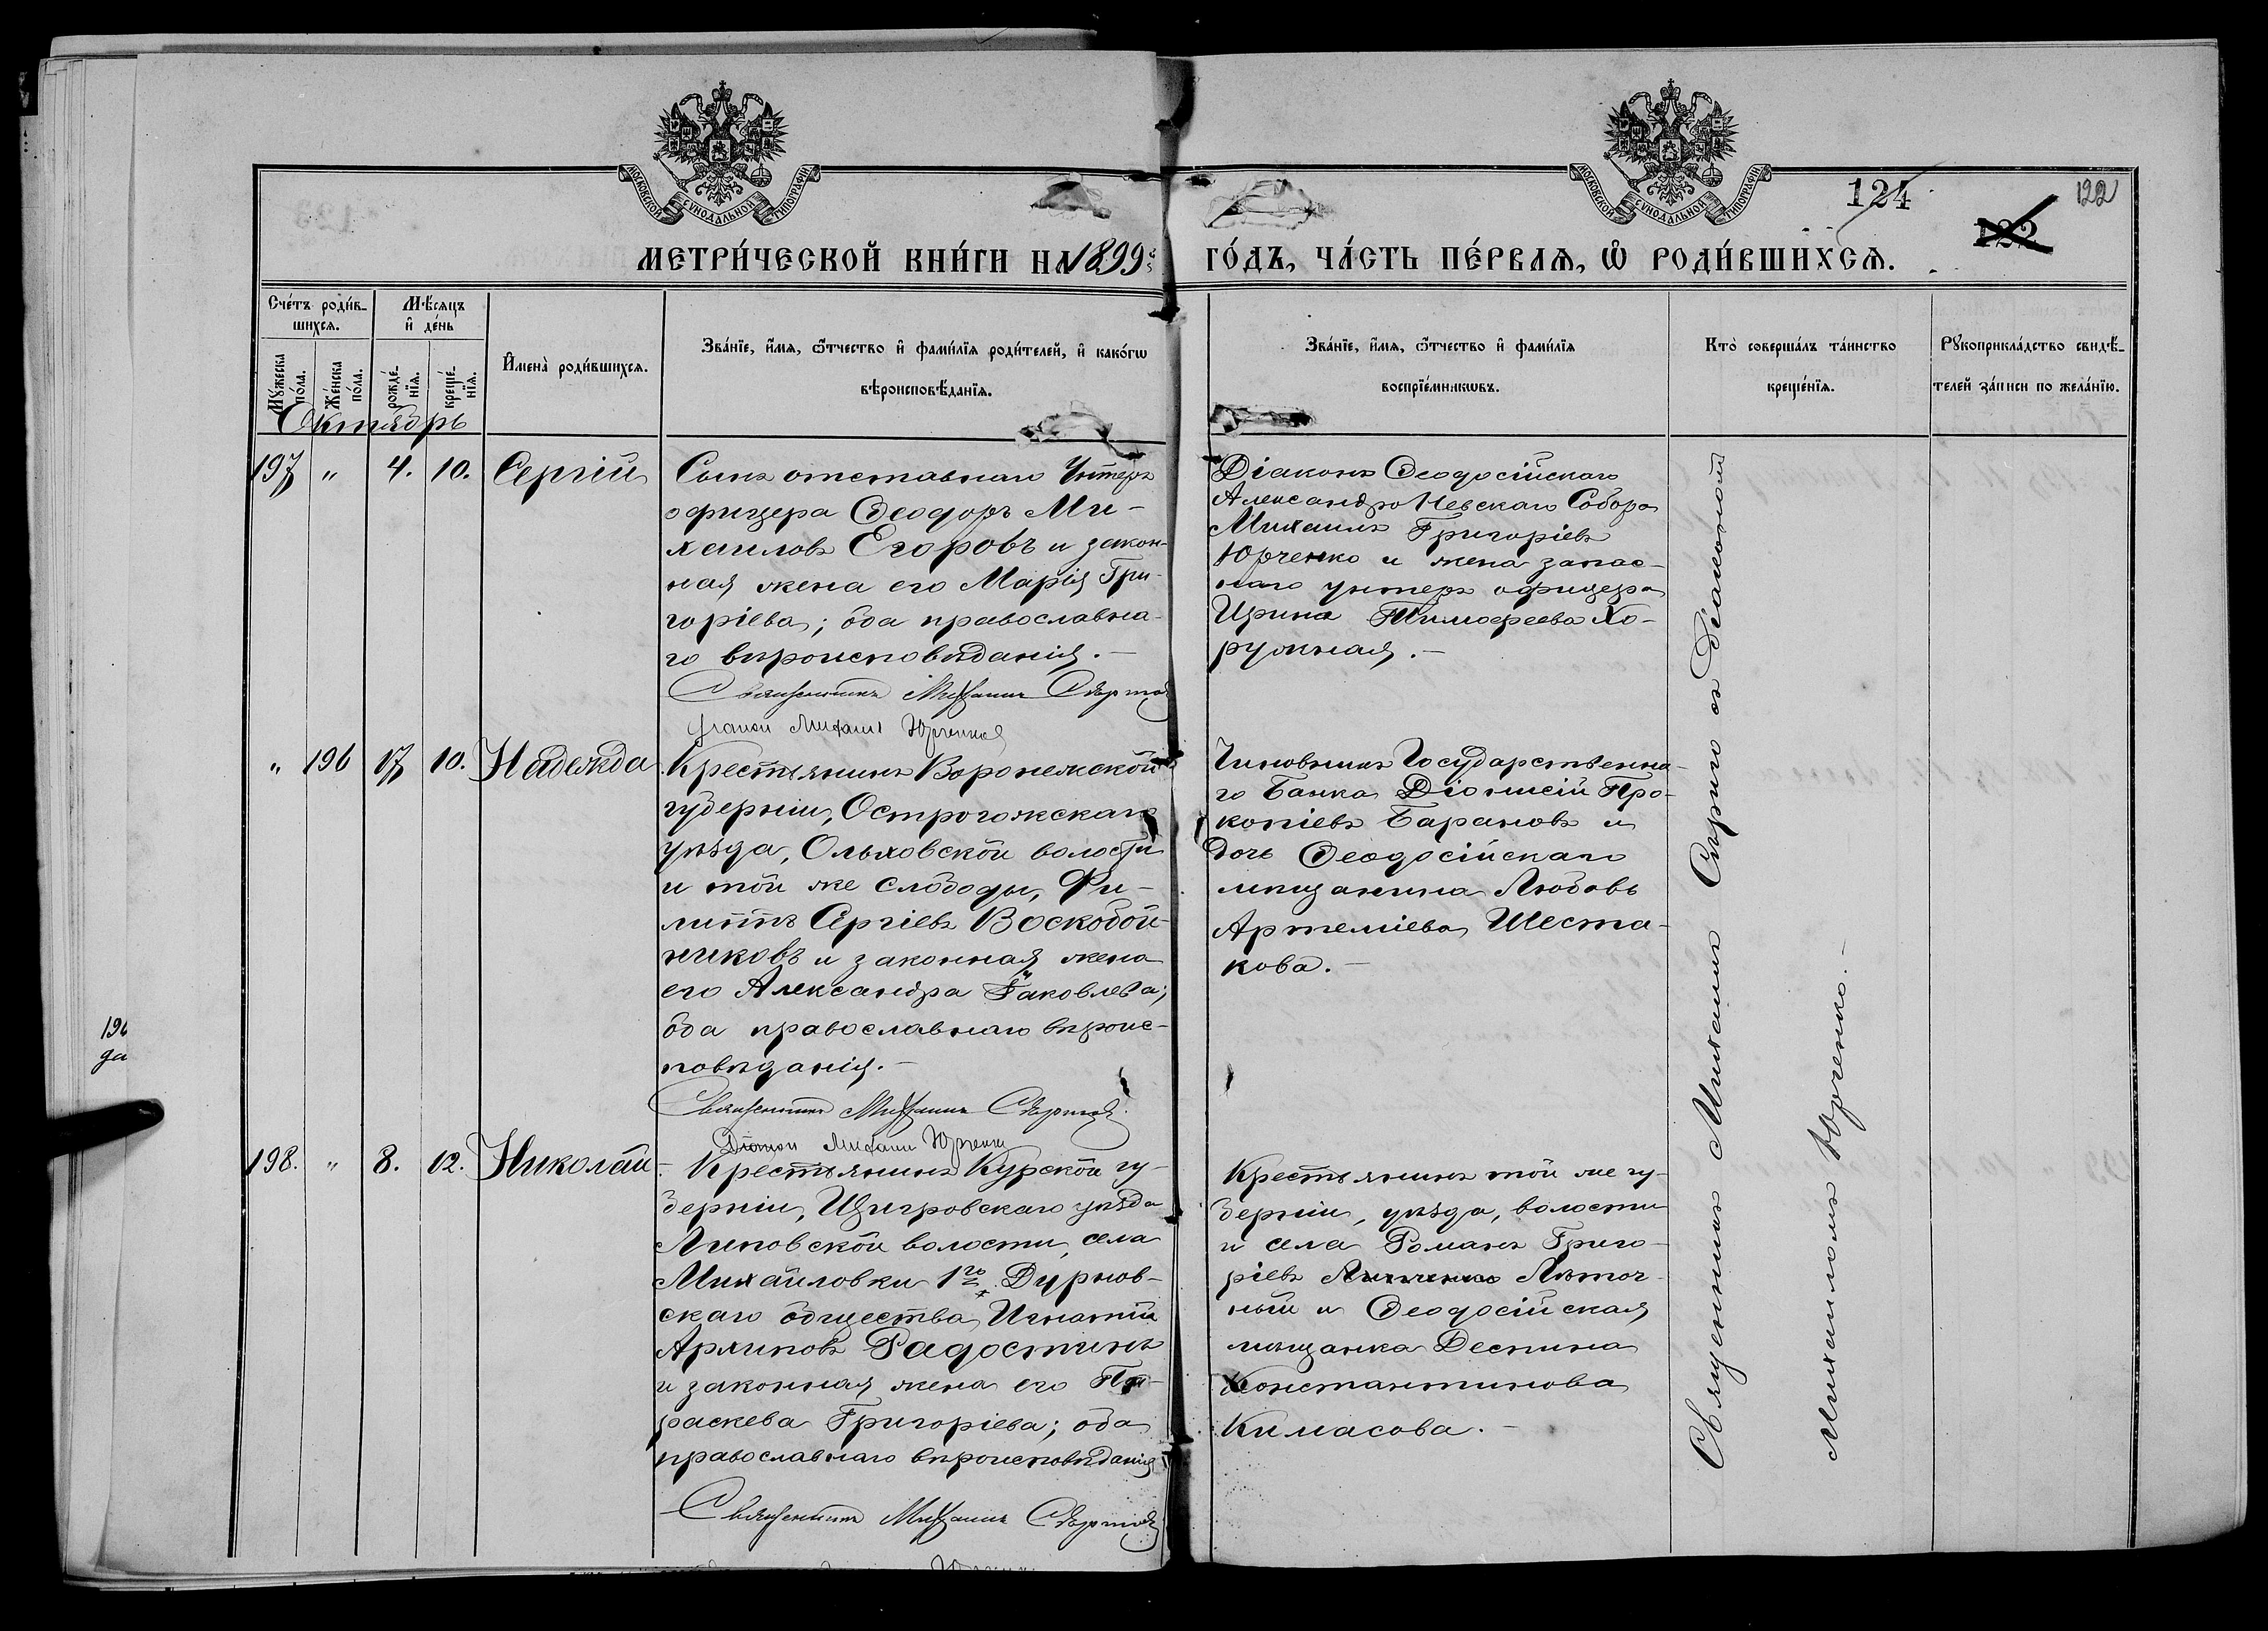 МОСКОВСКОЙ СѴНОДАЛЬНОЙ ТИПОГРАФІИ
МОСКОВСКОЙ СѴНОДАЛЬНОЙ ТИПОГРАФІИ
124
122
122
МЕТРИ́ЧЕСКОЙ КНИ́ГИ НА 1899
ГО́ДЪ, ЧА́СТЬ ПЕ́РВАѦ, Ѡ҆ РОДИ́ВШИХСѦ.
Сче́тъ роди́в-
шихсѧ.
Мѣ́сѧцъ
и҆ де́нь
Мꙋ́жеска по́ла.
Же́нска по́ла.
рожде́-
нїѧ.
креще́-
нїѧ.
И҆мена̀ роди́вшихсѧ.
Зва́нїе, и҆́мѧ, ѻ҆́тчество и҆ фами́лїѧ роди́телей, и҆ како́гѡ
вѣроисповѣ́данїѧ.
Зва́нїе, и҆́мѧ, ѻ҆́тчество и҆ фами́лїѧ
воспрїе́мникѡвъ.
Кто̀ соверша́лъ та́инство
креще́нїѧ.
Рꙋкоприкла́дство свидѣ́-
телей за́писи по жела́нїю.
Октябрь
197 " 4. 10. Сергій
Сынъ отставнаго Унтеръ
офицера Ѳеодоръ Ми-
хаиловъ Егоровъ и закон-
ная жена его Марія Гри-
горіева; оба православна-
го вѣроисповѣданія. —
Священникъ Михаилъ
Діаконъ Михаилъ Юрченко
Діаконъ Ѳеодосійскаго
Александро Невскаго Собора
Михаилъ Григоріевъ
Юрченко и жена запас-
наго унтеръ офицера
Ирина Тимоѳеева Хо-
ружная. —
" 196 17 10. Надежда
Крестьянинъ Воронежской
губерніи, Острогожскаго
уѣзда, Ольховской волости
и той же слободы, Фи-
липпъ Сергіевъ Воскобой-
никовъ и законная жена
его Александра Іаковлева;
оба православнаго вѣроис-
повѣданія. —
Священникъ Михаилъ
Діаконъ Михаилъ Юрченко
Чиновникъ Государственна-
го Банка Діонисій Про-
копіевъ Барановъ и
дочь Ѳеодосійскаго
мѣщанина Любовь
Артеміева Шеста-
кова. —
198. " 8. 12. Николай
Крестьянинъ Курской гу-
берніи, Щигровскаго уѣзда
Липовской волости, села
Михайловки 1го Дурнов-
скаго общества Игнатій
Архиповъ Радостинъ
и законная жена его Па-
раскева Григоріева; оба
православнаго вѣроисповѣданія
Священникъ Михаилъ
Крестьянинъ той же гу-
берніи, уѣзда, волости
и села Романъ Григо-
ріевъ Лѣточ-
ный и Ѳеодосійская
мѣщанка Деспина
Константинова
Кимасова. —
Священникъ Михаилъ съ Діакономъ
Михаиломъ Юрченко. —
196
да